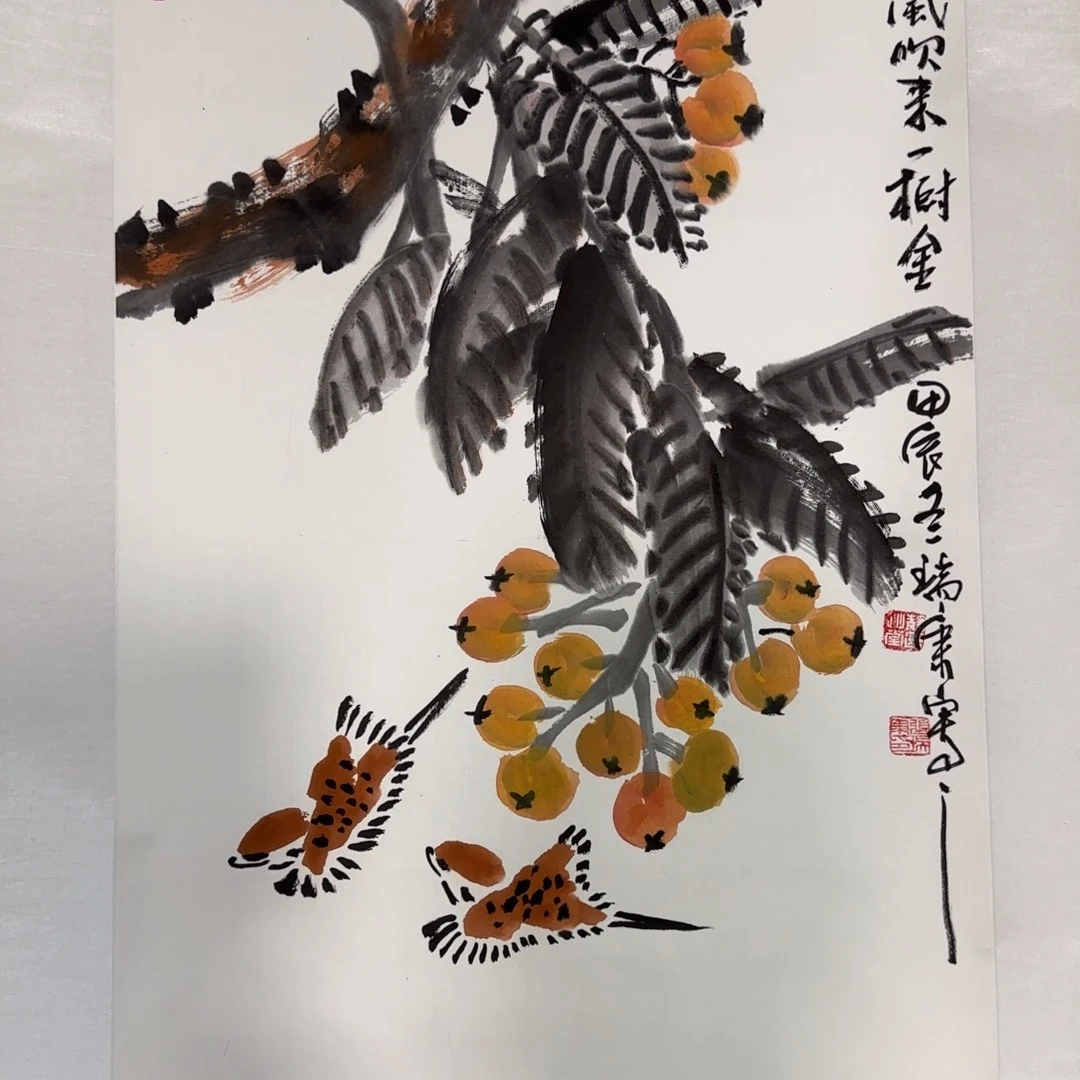 風吹来一樹金
甲辰冬瑞康寫